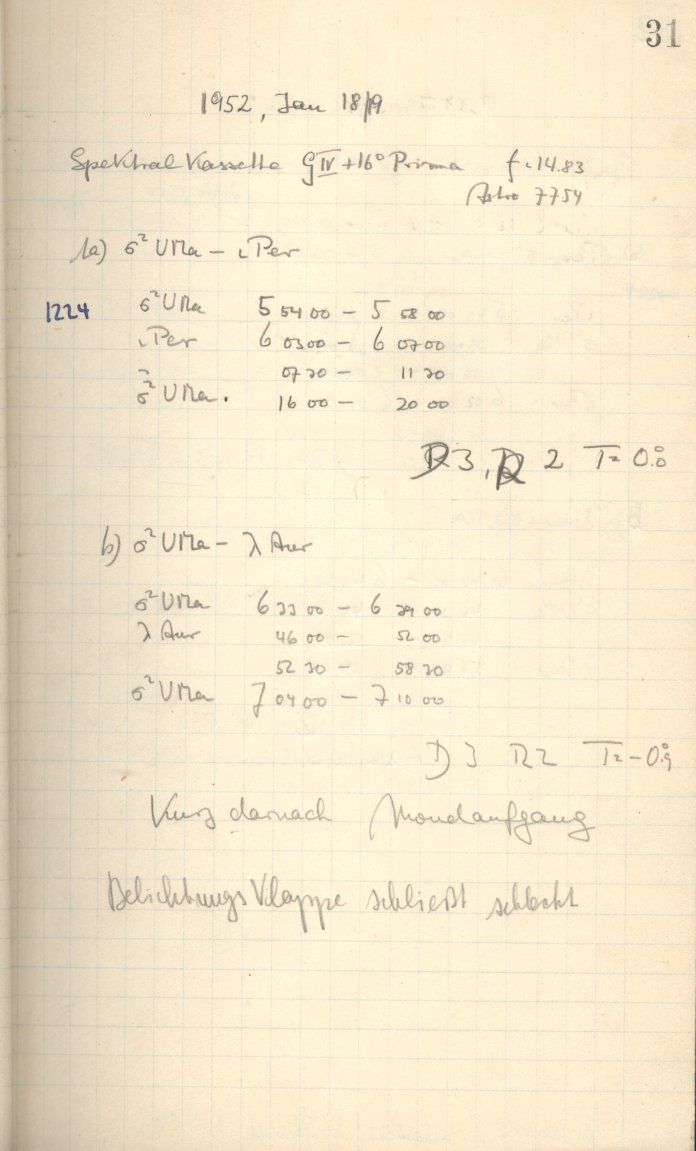 31
1952, Jan 18/19
Spektralkassette G IV + 16° Prisma f = 14.83
Astro 7754
1a) σ² UMa – ι Per
1224 σ² UMa 5 54 00 – 5 58 00
ι Per 6 03 00 – 6 07 00
07 30 – 11 30
σ² UMa. 16 00 – 20 00
R 2 T = 0.°0
b) σ² UMa – λ Aur
σ² UMa 6 33 00 – 6 39 00
λ Aur 46 00 – 52 00
52 30 – 58 30
σ² UMa 7 04 00 – 7 10 00
D 3 R 2 T = –0.°9
Kurz darnach Mondaufgang
Belichtungsklappe schließt schlecht